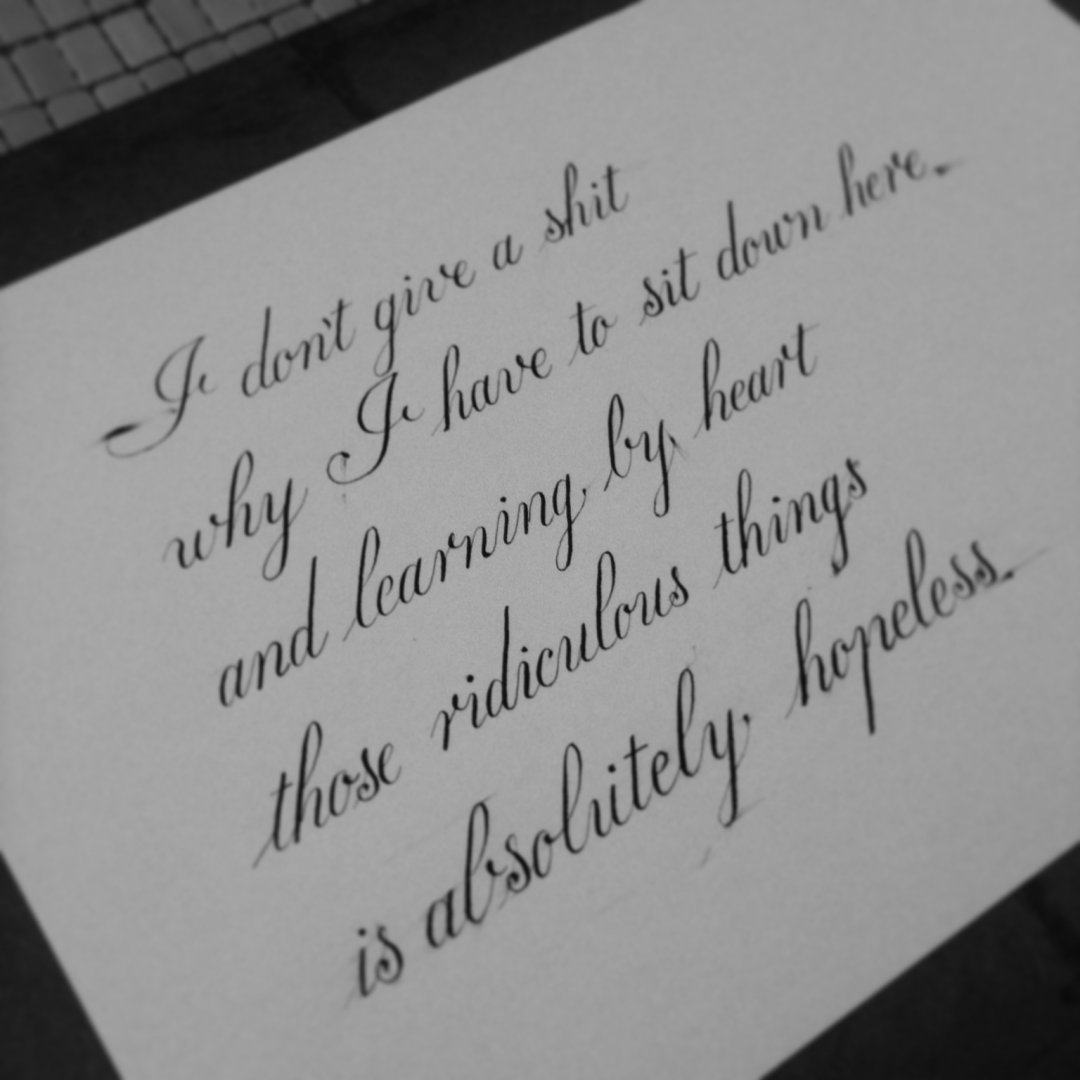 I don't give a shit
why I have to sit down here.
and learning by heart
those ridiculous things
is absolutely hopeless.